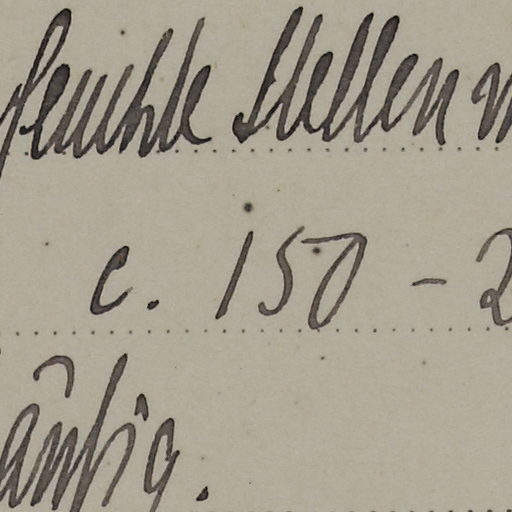 feuchte Stellen
c. 150 - 2
äufig.